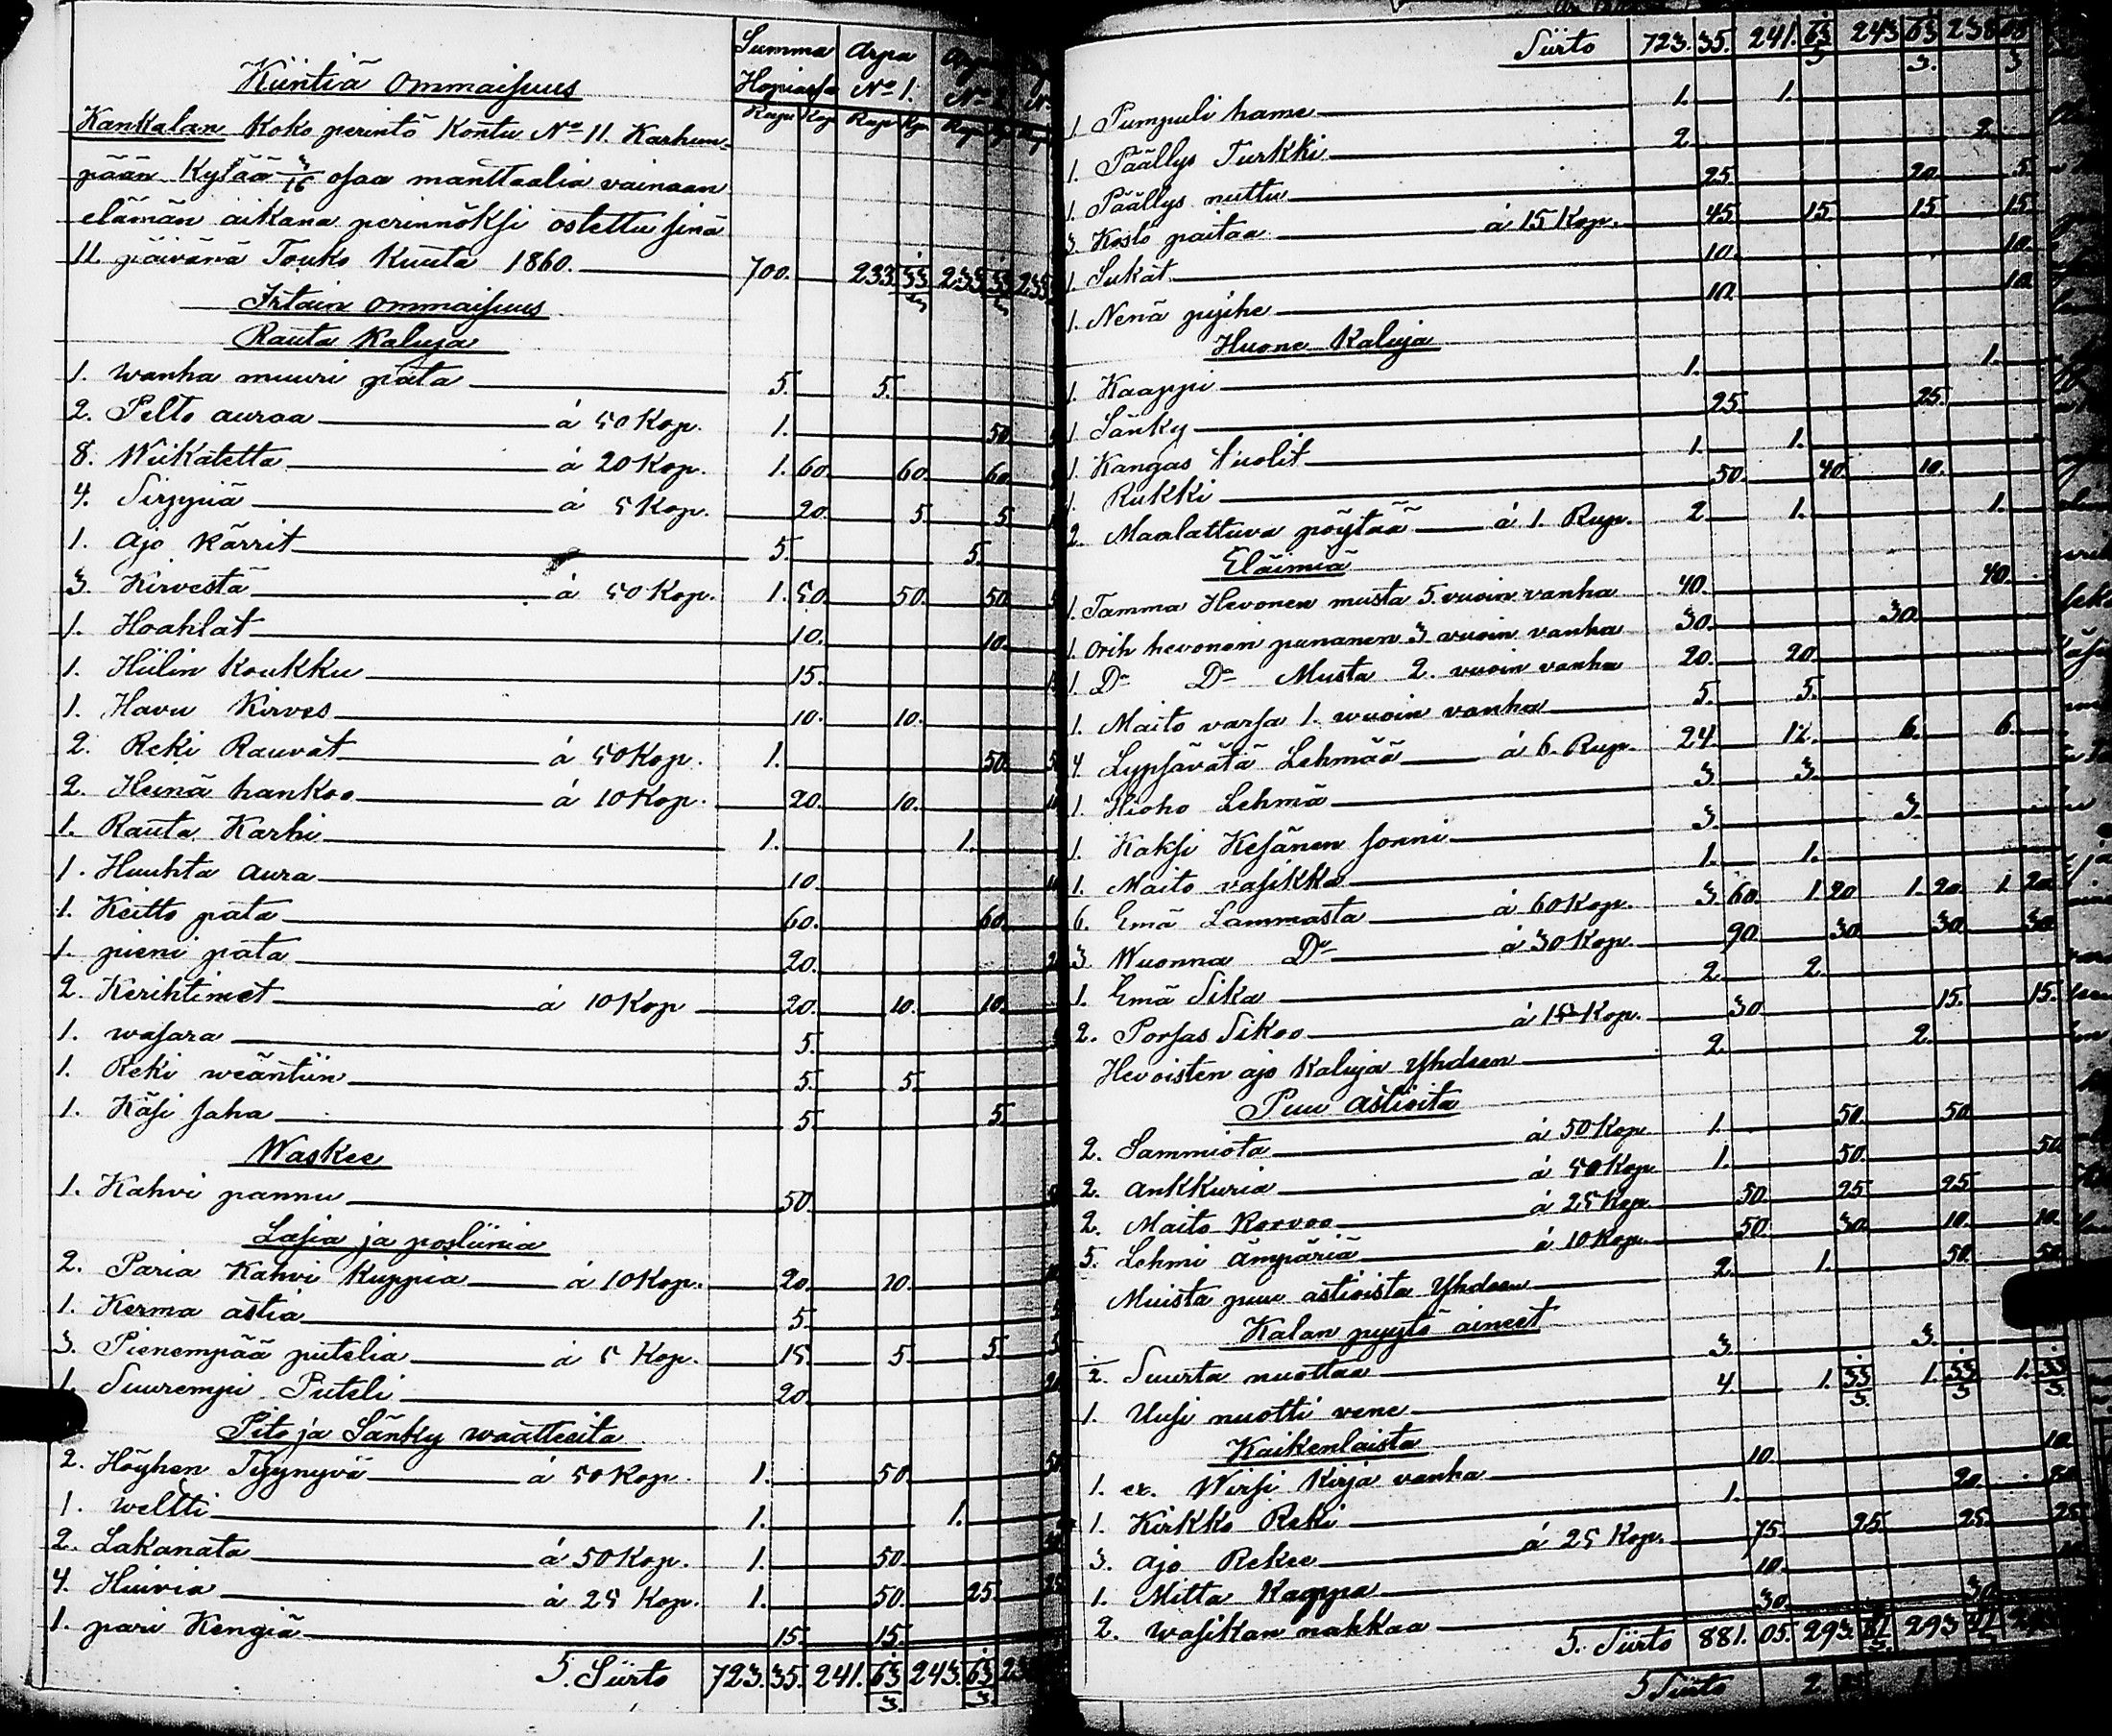 Summa Arpa
Kiintiä Ommaisuus Hopiassa No 1. No 2.
Kankalan Koko perintö Kontu No 11. Karhun= Rup Kop Rup Kop
pään Kylää 3/16 osaa manttaalia vainaan
elämän aikana perinnöksi ostettu sinä
11 päivänä Touko Kuuta 1860. 700. 233. 33 233 33 233
Irtain ommaisuus
Rauta Kaluja
1. wanha muuri pata 5. 5.
2. Pelto auraa á 50 Kop. 1. 50.
8. Wiikatetta á 20 Kop. 1. 60. 60. 60.
4. Sirppiä á 5 Kop. 20. 5. 5
1. Ajo Kärrit 5. 5.
3. Kirvestä á 50 Kop. 1. 50. 50. 50
1. Hoahlat 10. 10.
1. Hiilin Koukku 15.
1. Havu Kirves 10. 10.
2. Reki Rauvat á 50 Kop. 1. 50.
2. Heinä hankoo á 10 Kop. 20. 10.
1. Rauta Karhi 1. 1.
1. Huuhta aura 10.
1. Keitto pata 60. 60.
1. pieni pata 20.
2. Kerihtimet á 10 Kop 20. 10. 10.
1. wasara 5.
1. Reki weäntiin 5. 5.
1. Käsi saha 5. 5
Waskee
1. Kahvi pannu 50.
Lasia ja posliinia
2. Paria Kahvi Kuppia á 10 Kop. 20. 10.
1. Kerma astia 5.
3. Pienempää putelia á 5 Kop. 15. 5. 5. 5
1. Suurempi Puteli 20. 20
Pito ja Sänky waatteita
2. Höyhen Tyynyvä á 50 Kop. 1. 50. 50
1. weltti 1. 1.
2. Lakanata á 50 Kop. 1. 50.
4. Huivia á 25 Kop. 1. 50. 25. 25
1. pari Kengiä 15. 15.
5. Siirto 723. 35. 241. 63/3 243. 63/3
Siirto 723. 35. 241. 63/3 243 63/3 238 05/3
1. Pumpuli hame 1. 1.
1. Päällys Turkki 2 2.
1. Päällys nuttu 25. 20. 5.
3. Kosto paitaa á 15 Kop. 45. 15 15. 15.
1. Sukat 10. 10.
1. Nenä pyjihe 10. 10.
Huone Kaluja
1. Kaappi 1. 1.
1. Sänky 25. 25.
1. Kangas Puolit 1. 1.
1. Rukki 50. 40. 10.
2. Maalattuva pöytää á 1. Rup. 2. 1. 1.
Eläimiä
1. Tamma Hevonen musta 5. vuoin vanha 40. 40.
1. Orih hevonen punanen 3 vuoin vanha 30. 30.
1. Do Do Musta 2. vuoin vanha 20. 20.
1. Maito varsa 1. wuoin vanha 5. 5.
4. Lypsävätä Lehmää á 6. Rup. 24. 12. 6. 6.
1. Hieho Lehmä 3. 3
1. Kaksi Kesänen sonni 3. 3.
1. Maito vasikka 1. 1.
6. Emä Lammasta á 60 Kop. 3. 60. 1. 20 1. 20. 1 20.
3 Wuonna Do á 30 Kop. 90. 30. 30. 30.
1. Emä Sika 2. 2.
2. Porsas Sikoo á 15 Kop. 30 15. 15.
Hevoisten ajo Kaluja Yhdeen 2. 2.
Puu astioita
2. Sammiota á 50 Kop. 1. 50. 50.
2. ankkuria á 50 Kop 1. 50. 50
2. Maito Korvoo á 25 Kop. 50. 25 25.
5. Lehmi ämpäriä á 10 Kop. 50. 30. 10. 10.
Muista puu astioista Yhdeen 2. 1. 50. 50.
Kalan pyytö aineet
2. Suurta nuottaa 3. 3.
1. Uusi nuotti vene 4. 1. 33/3 1. 33/3 1. 33/3
Kaikenlaista
1. ex. Wirsi Kirja vanha 10 10
1. Kirkko Reki 1. 20. 80
3. ajo Rekee á 25 Kop. 75. 25. 25. 25
1. Mitta Kappa 10. 10
2. wasikan nahkaa 30. 30.
5. Siirto 881. 05. 293.
5 Siirto